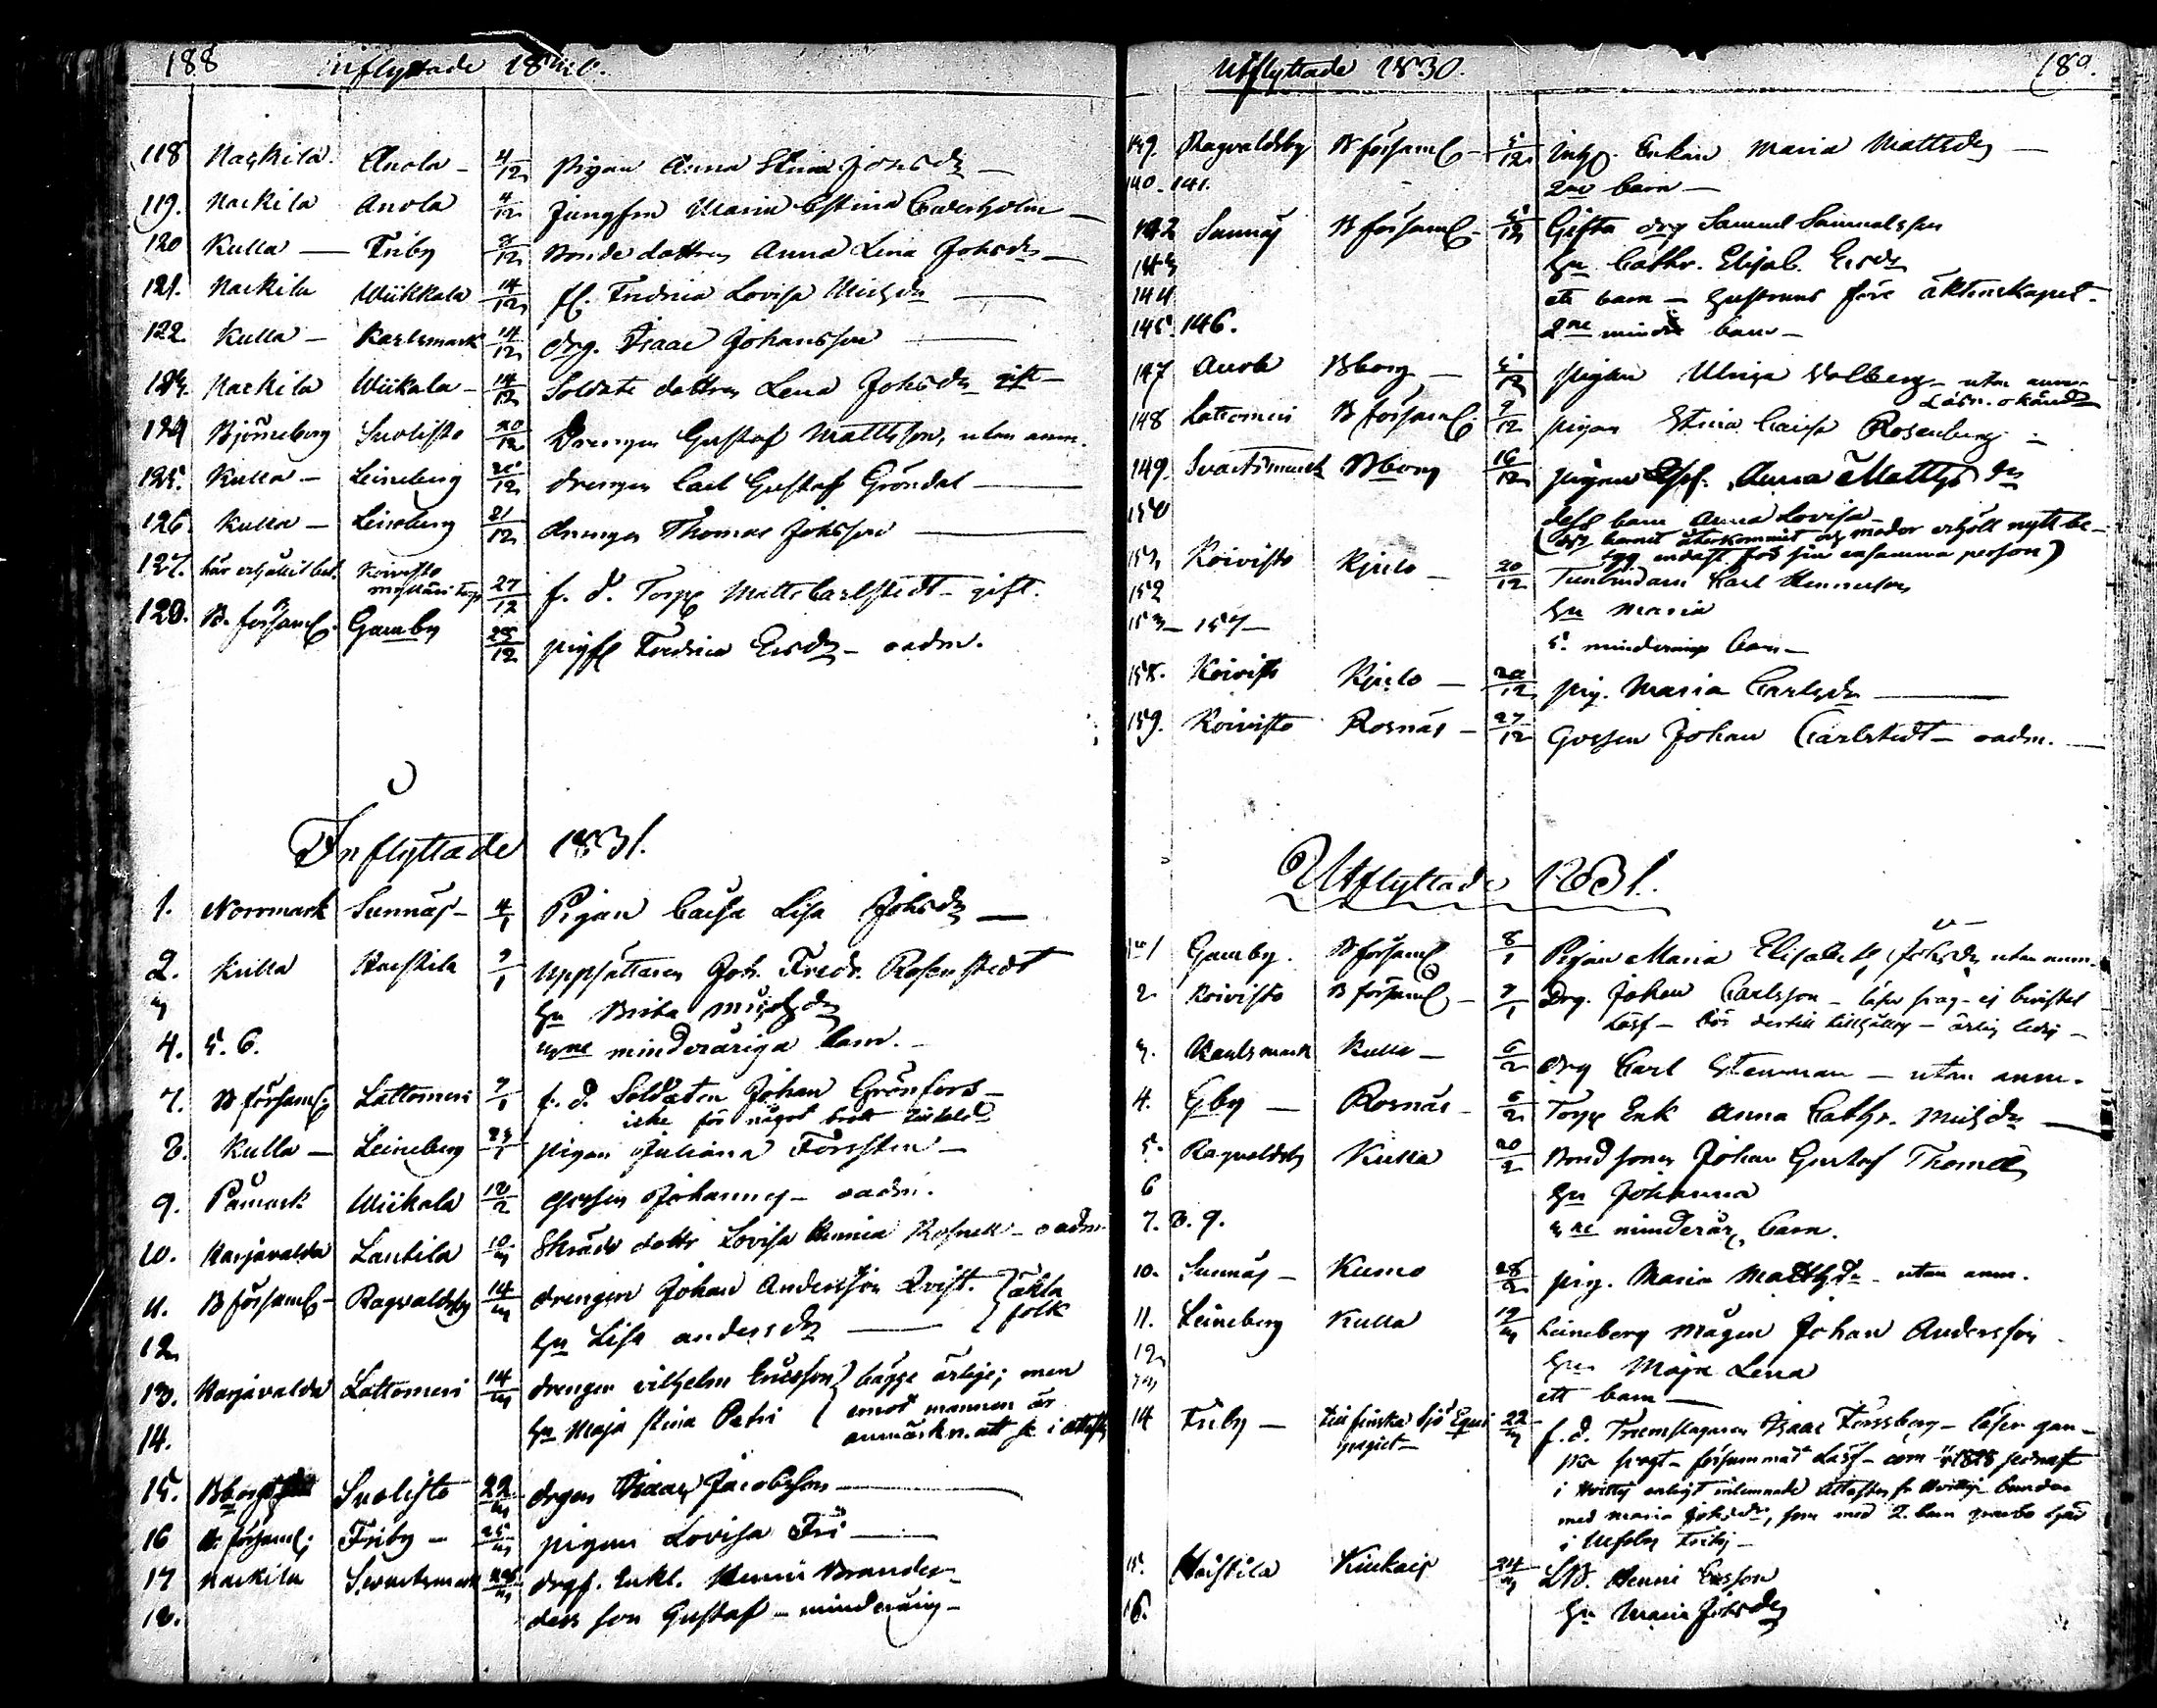 188 Inflyttade 1830.
118 Nackila Anola - 4/12 Pigan Anna Stina Johsdr -
119. Nackila Anola 4/12 Jungfru Maria Christina Cederholm -
120 Kulla - Friby 9/12 Bonde dottren Anna Lena Johsdr -
121. Nackila Wiikkala 14/12 fl. Fredrica Lovisa Michsdr -
122. Kulla - Karlsmark 14/12 drg. Isaac Johansson -
123. Nackila Wiikala - 14/12 Soldats dottren Lena Johsdr gift -
124 Björneborg Suolisto 20/12 Drengen Gustaf Mattsson, utan anm.
125. Kulla - Leineberg 20/12 drengen Carl Gustaf Gröndal -
126. Kulla - Leineberg 21/12 drengen Thomas Johsson -
127. här erhållit bet. Koivisto
27/12 f. d. Torp Matts Carlstedt - gift.
128. B. församl. Gamby 28/12 pigfl Fredrica Ersdr - oadm.
Inflyttade 1831.
1. Norrmark Sunnäs - 4/1 Pigan Caisa Lisa Johsdr -
2. Kulla Haistila 7/1 Uppsättaren Joh. Fredr. Rosenstedt
3 Hu Brita Michsdr
4. 5. 6. 3ne minderåriga barn. -
7. B församl. Lattomeri 7/1 f. d. Soldaten Johan Grönfors -
icke för något brott
8. Kulla - Leineberg 23/1 pigan Juliana Forssten -
9. Påmark Wiikala 10/2 gossen Johannes - oadm.
10. Harjavalda Lautila 10/3 Skrädd dottr Lovisa Rosnell - oadm
11. B församl - Ragvaldsby 14/3 drengen Johan Andersson Qvist. äkta
12. Hu Lisa andersdr - folk
13. Harjavalda Lattomeri 14/3 drengen vilhelm Ericsson bägge ärlige; men
14. Hu Maja stina Petri emot mannen är
anmärkn. att se i attesten
15. Bborg Suolisto 22/3 drgen Isaac Jacobsson -
16 B. församl. Friby - 25/3 pigan Lovisa Fri -
17 Nackila Svartsmark drgf. Enkl. Henric Brander -
18. dess son Gustaf - minderårig -
Utflyttade 1830. 189.
139. Ragvaldsby B församl - 5/12 Inhs. Enkan Maria Mattsdr -
140. 141. 2ne barn -
142 Sunnäs B församl - 5/12 Gifta drg Samuel Samuelsson
143 Hu Cathr. Elisab. Ersdr
144 ett barn - hustruns före äktenskapet.
145. 146. 2ne mindre barn -
147 Anola Bborg - 5/12 pigan Ulrica Valberg - utan anm.
148 Lattomeri B församl. 9/12 pigan Stina Caisa Rosenberg -
149. Svartsmark Bborg 16/12 pigan Anna Mattsdr
150 dess barn Anna Lovisa -
barnet återkommit och moder erhöll nytt be-
tyg endast för sin ensamma person)
151 Koivisto Kjulo - 20/12 Karl Henricson
152 Hu Maria
153 - 157 - 5. minderåriga barn -
158. Koivisto Kjulo - 20/12 pig. Maria Carlsdr -
159. Koivisto Rosnäs - 27/12 Gossen Johan Carlstedt - oadm. -
Utflyttade 1831.
1 Gamby. B församl 8/1 Pigan Maria Elisabeth Johsdr utan anm.
2 Koivisto B församl - 9/1 Drg. Johan Carlsson -
3. Karlsmark Kulla - 6/2 drg Carl Stenman - utan anm.
4. Gby - Rosnäs - 6/2 Torp Enk Anna Cathr. Michsdr -
5. Ragvaldsby Kulla 20/2 Bondsonen Johan Gustaf Thomass
6 Hu Johanna
7. 8. 9. 3ne minderår. barn.
10. Sunnäs - Kumo 28/2 pig. Maria Mattsdr - utan anm.
11. Leineberg Kulla 19/3 Leineberg Mågen Johan Andersson
12 Hu Maja Lena
13 ett barn -
14 Friby - till finska Sjö Equi page - 22/3 f. d. Isaac Forssberg - läser gan-
ska svagt - försummat Läsf -
i Hvittis enligt inlemnade
med maria Johsdr, som med 2. barn
i Ulfsby Friby -
15. Haistila Kiukais 24/3 Henric Ersson
16. Hu Maria Johsdr